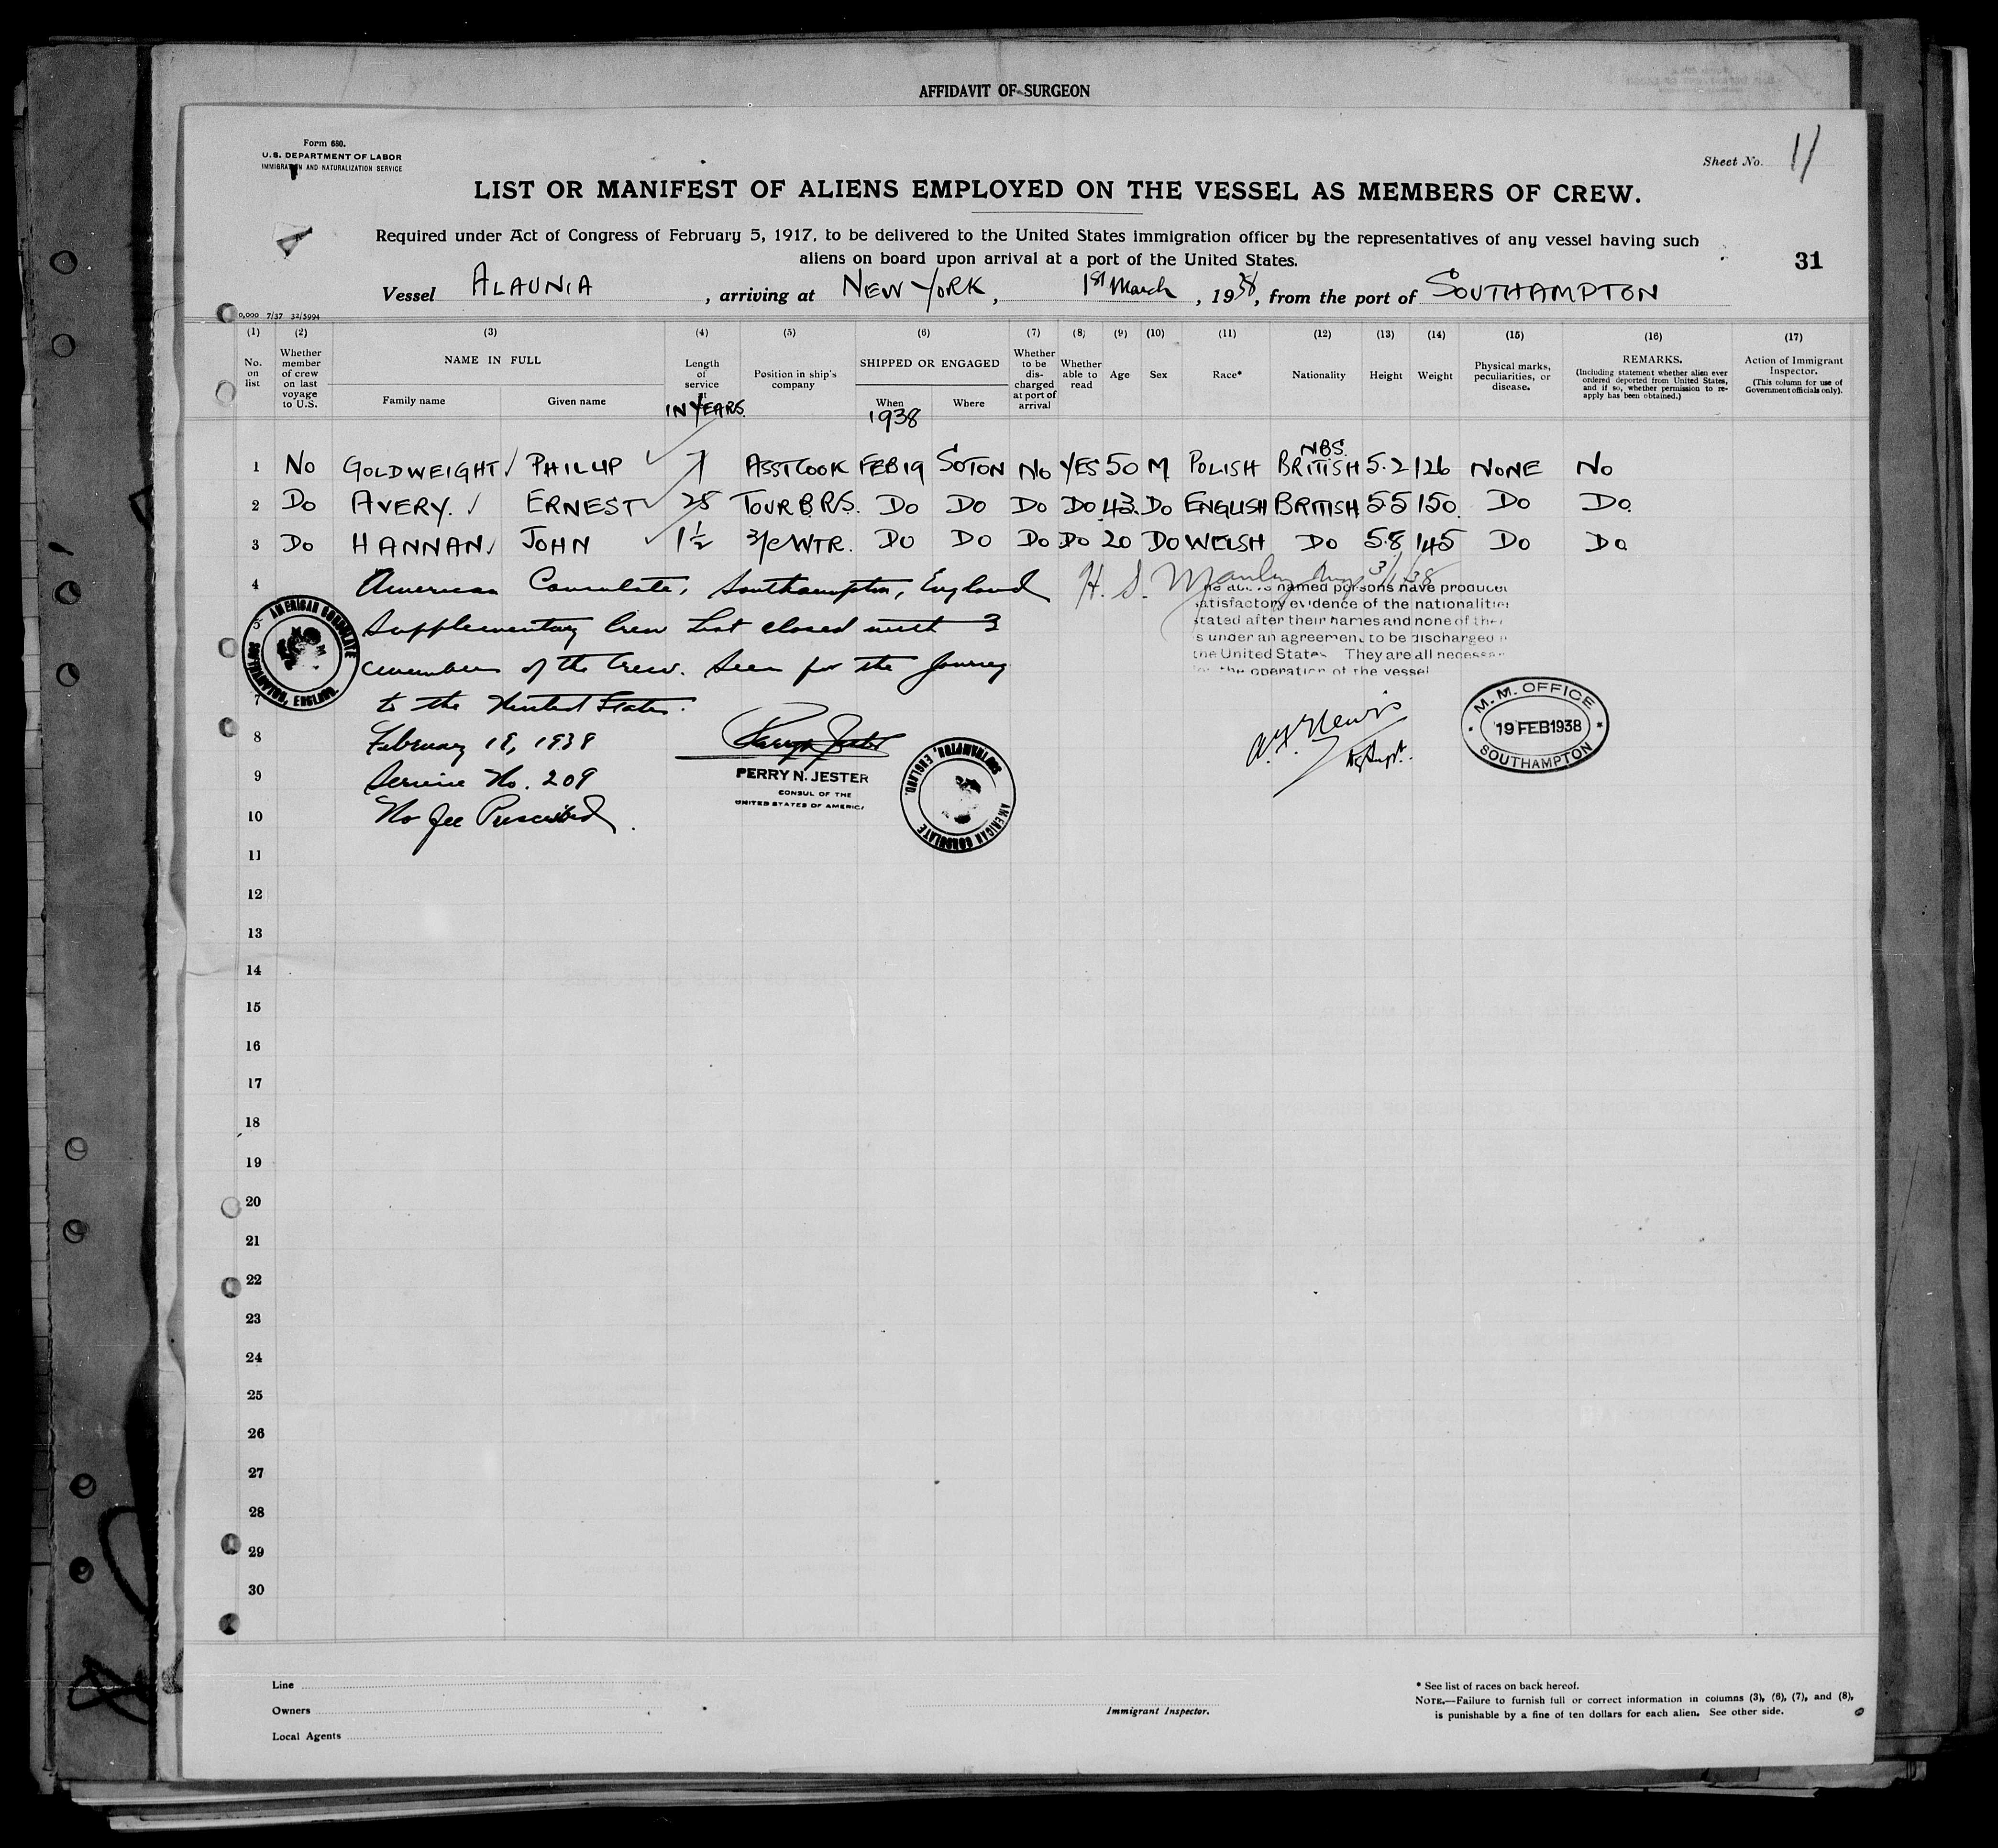 AFFIDAVIT OF SURGEON
Form 680.
U.S. DEPARTMENT OF LABOR
IMMIGRATION AND NATURALIZATION SERVICE
Sheet No. 11
LIST OR MANIFEST OF ALIENS EMPLOYED ON THE VESSEL AS MEMBERS OF CREW.
Required under Act of Congress of February 5, 1917, to be delivered to the United States immigration officer by the representatives of any vessel having such
aliens on board upon arrival at a port of the United States.
31
Vessel ALAUNIA, arriving at NEW YORK, 1st March, 1938, from the port of SOUTHAMPTON
0,000 7/37 32/5994
(1) (2) (3) (4) (5) (6) (7) (8) (9) (10) (11) (12) (13) (14) (15) (16) (17)
No. on list
Whether member of crew on last voyage to U.S.
NAME IN FULL
Family name Given name
Length of service at
IN YEARS
Position in ship's company
SHIPPED OR ENGAGED
When Where
1938
Whether to be discharged at port of arrival
Whether able to read
Age
Sex
Race*
Nationality
Height
Weight
Physical marks, peculiarities, or disease.
REMARKS.
(Including statement whether alien ever ordered deported from United States, and if so, whether permission to reapply has been obtained.)
Action of Immigrant Inspector.
(This column for use of Government officials only).
NBS.
1 NO GOLDWEIGHT PHILLIP 7 ASST COOK FEB 19 SOTON NO YES 50 M POLISH BRITISH 5.2 126 NONE NO
2 DO AVERY. ERNEST 28 TOUR B.R.S. DO DO DO DO 43 DO ENGLISH BRITISH 5 5 150 DO DO
3 DO HANNAN JOHN 1½ 3/C WTR. DO DO DO DO 20 DO WELSH DO 5.8 145 DO DO
4 American Consulate, Southampton, England H. S. 3/1/38
named persons have produced
satisfactory evidence of the nationalities
5 Supplementary Crew List closed with 3
stated after their names and none of the
s under an agreement to be discharged
members of the Crew. Seen for the Journey
the United States They are all necessar
for the operation of the vessel
7 to the United States.
8 February 19, 1938
9 Service No. 209
10 No fee Prescribed.
PERRY N. JESTER
CONSUL OF THE
UNITED STATES OF AMERICA
AMERICAN CONSULATE
SOUTHAMPTON, ENGLAND.
AMERICAN CONSULATE
SOUTHAMPTON, ENGLAND.
M. M. OFFICE
19 FEB 1938
SOUTHAMPTON
11
12
13
14
15
16
17
18
19
20
21
22
23
24
25
26
27
28
29
30
Line
Owners
Local Agents
Immigrant Inspector.
* See list of races on back hereof.
NOTE.—Failure to furnish full or correct information in columns (3), (6), (7), and (8),
is punishable by a fine of ten dollars for each alien. See other side.